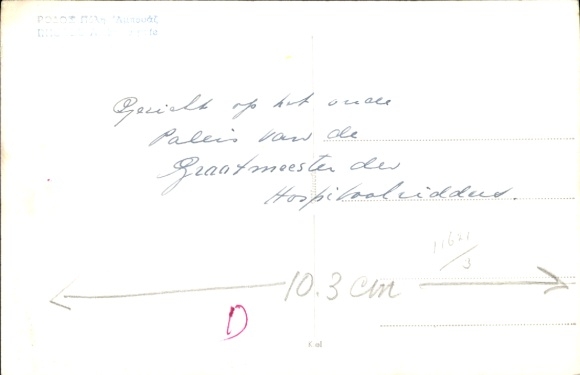 ΡΟΔΟΣ Πύλη
Gezicht op het oude
Paleis van de
Grootmeester der
Hospitaalridders.
11621/3
10.3 cm
D